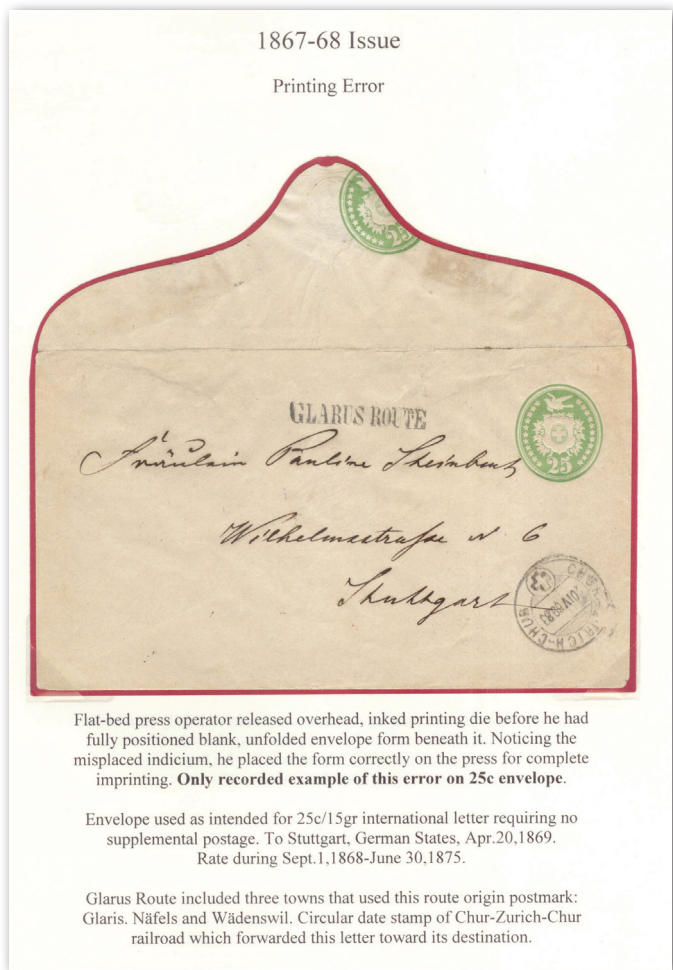 1867-68 Issue
Printing Error
25
GLARUS ROUTE
Fräulein Pauline
25
Wilhelmsstrasse N 6
Stuttgart
RICH-CHUR
Flat-bed press operator released overhead, inked printing die before he had
fully positioned blank, unfolded envelope form beneath it. Noticing the
misplaced indicium, he placed the form correctly on the press for complete
imprinting. Only recorded example of this error on 25c envelope.
Envelope used as intended for 25c/15gr international letter requiring no
supplemental postage. To Stuttgart, German States, Apr.20,1869.
Rate during Sept.1,1868-June 30,1875.
Glarus Route included three towns that used this route origin postmark:
Glaris. Näfels and Wädenswil. Circular date stamp of Chur-Zurich-Chur
railroad which forwarded this letter toward its destination.